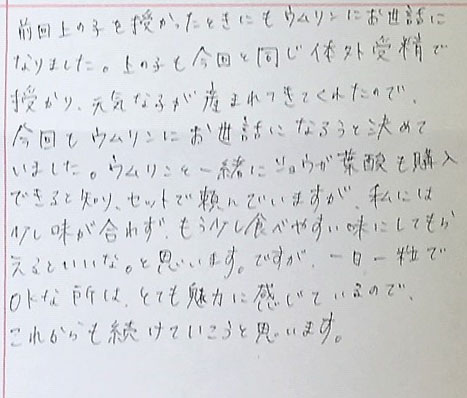 前回上の子を授かったときにもウムリンにお世話に
なりました。上の子も今回と同じ体外受精で
授かり、元気な子が産まれてきてくれたので、
今回もウムリンにお世話になろうと決めて
いました。ウムリンと一緒にショウガ葉酸も購入
できると知り、セットで頼んでいますが、私には
少し味が合わず、もう少し食べやすい味にしてもら
えるといいな。と思います。ですが、一日一粒で
OKな所は、とても魅力に感じているので、
これからも続けていこうと思います。